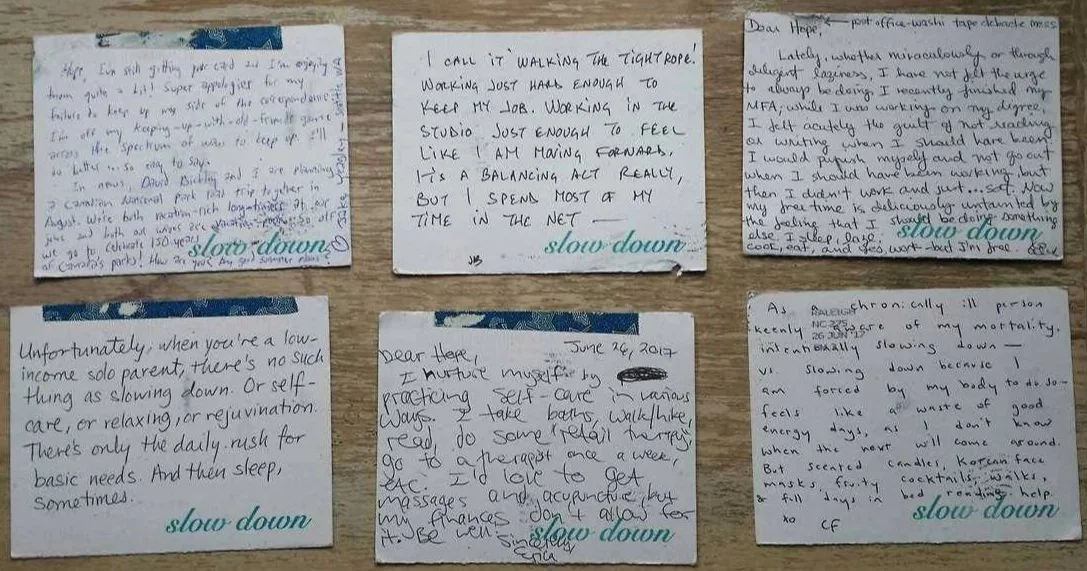 Hope, I'm still getting your card and I'm enjoying
them quite a bit! Super apologies for my
failure to keep up my side of the correspondence
I'm off my keeping-up-with-old-friends game
across the spectrum of ways to keep up. I'll
do better... so easy to say.
In news, David and I are planning
a Canadian National park road trip together in
August. We're both vacation-rich at our
jobs and both our wives are so off
we go to celebrate 150 years
of Canada's parks! How are you? Any good summer plans?
slow down
I CALL IT "WALKING THE TIGHTROPE!
WORKING JUST HARD ENOUGH TO
KEEP MY JOB. WORKING IN THE
STUDIO JUST ENOUGH TO FEEL
LIKE I AM MOVING FORWARD.
IT'S A BALANCING ACT REALLY,
BUT I SPEND MOST OF MY
TIME IN THE NET —
JB
slow down
Dear Hope, ← post office-washi tape debacle mess
Lately, whether miraculously or through
diligent laziness, I have not felt the urge
to always be doing. I recently finished my
MFA; while I was working on my degree,
I felt acutely the guilt of not reading
or writing when I should have been.
I would punish myself and not go out
when I should have been working, but
then I didn't work and just... sat. Now
my free time is deliciously untainted by
the feeling that I should be doing something
else. I sleep, laze,
cook, eat, and yes, work—but I'm free.
slow down
Unfortunately, when you're a low-
income solo parent, there's no such
thing as slowing down. Or self-
care, or relaxing, or rejuvination.
There's only the daily rush for
basic needs. And then sleep,
sometimes.
slow down
June 26, 2017
Dear Hope,
I nurture myself by
practicing self-care in various
ways. I take baths, walk/hike,
read, do some "retail therapy,"
go to a therapist once a week,
etc. I'd love to get
massages and acupuncture, but
my finances don't allow for
it. Be well.
Sincerely,
Erica
slow down
As a chronically ill person
keenly aware of my mortality,
intentionally slowing down —
vs. slowing down because I
am forced by my body to do so—
feels like a waste of good
energy days, as I don't know
when the next will come around.
But scented candles, Korean face
masks, fruity cocktails, walks,
& full days in bed reading help.
xo CF
RALEIGH
NC 275
26 JUN '17
slow down